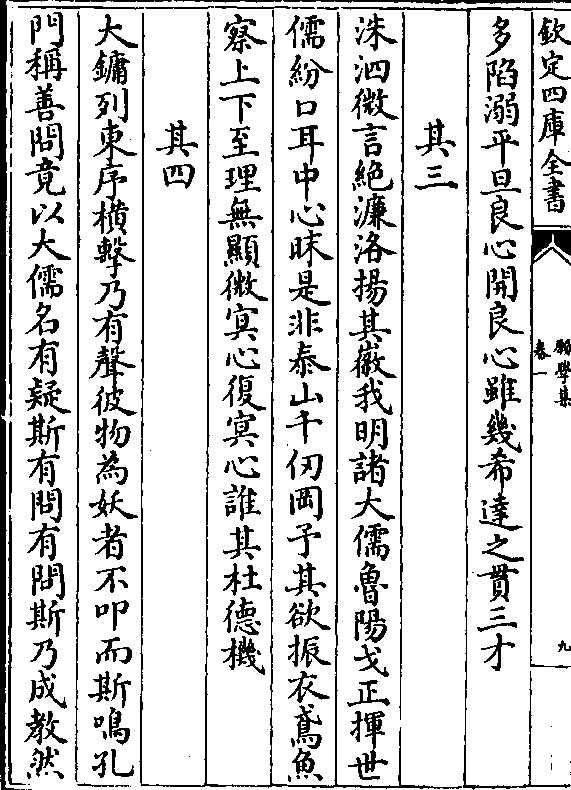 欽定四庫全書
卷一
九
多陷溺平旦良心開良心雖幾希達之貫三才
其三
洙泗微言絶濂洛揚其徽我明諸大儒魯陽戈正揮世
儒紛口耳中心昧是非泰山千仞岡予其欲振衣鳶魚
察上下至理無顯微冥心復冥心誰其杜德機
其四
大鏞列東序横擊乃有聲彼物為妖者不叩而斯鳴孔
門稱善問竟以大儒名有疑斯有問有問斯乃成教然